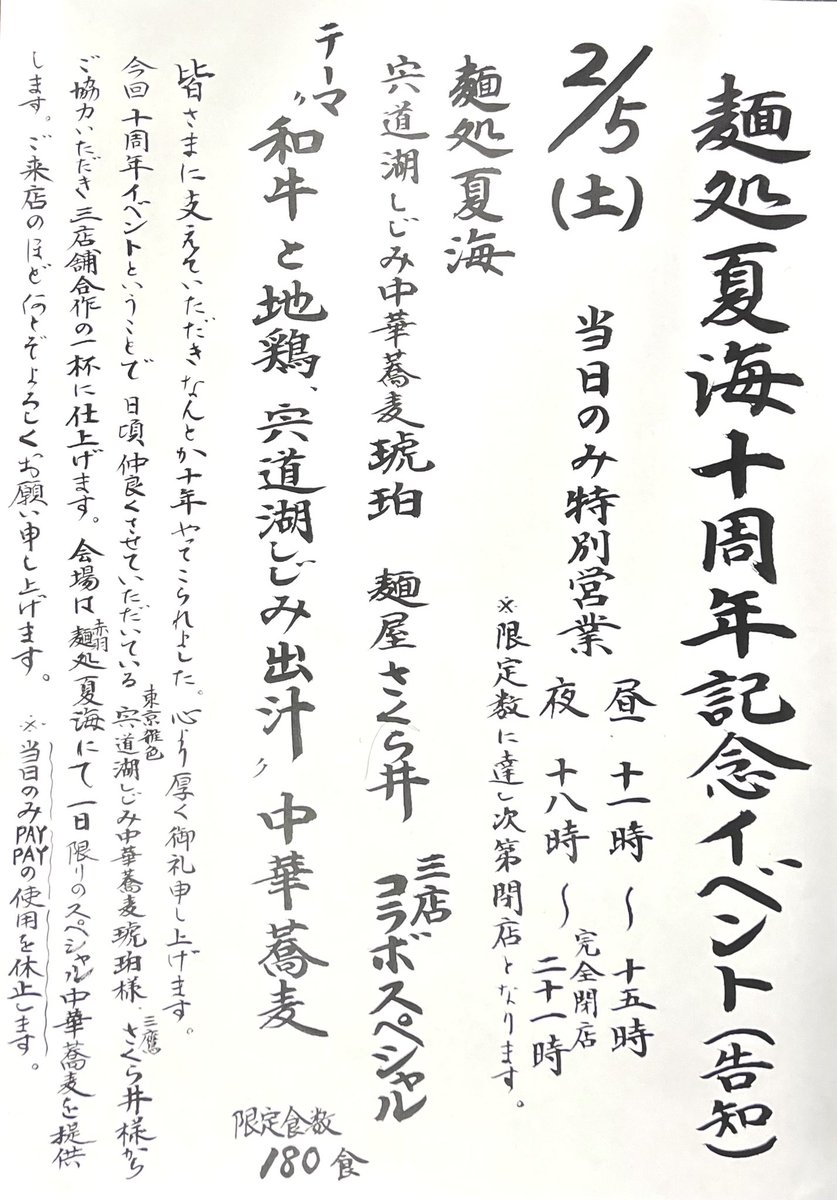 麺処夏海十周年記念イベント(告知)
2/5(土)
当日のみ特別営業
昼 十一時〜十五時
夜 十八時〜二十一時
完全閉店
※限定数に達し次第閉店となります。
麺処夏海
宍道湖しじみ中華蕎麦琥珀 麺屋さくら井
三店
コラボスペシャル
テーマ
〃和牛と地鶏、宍道湖しじみ出汁〃中華蕎麦
限定食数
180食
皆さまに支えていただきなんとか十年やってこられました。心より厚く御礼申し上げます。
今回十周年イベントということで日頃、仲良くさせていただいている
東京雑色
宍道湖しじみ中華蕎麦琥珀様、
三鷹
さくら井様から
ご協力いただき三店舗合作の一杯に仕上げます。会場は
赤羽
麺処夏海にて一日限りのスペシャル中華蕎麦を提供
します。ご来店のほど何とぞよろしくお願い申し上げます。
※当日のみPAYPAYの使用を休止します。